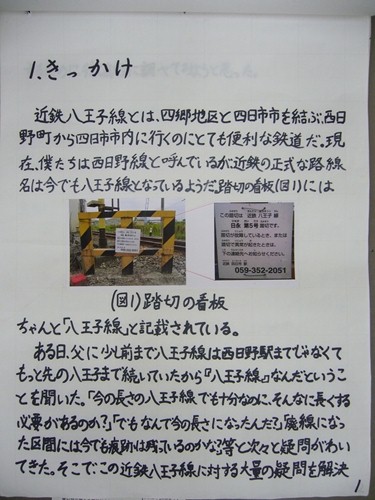 1.きっかけ
近鉄八王子線とは、四郷地区と四日市市を結ぶ、西日
野町から四日市市内に行くのにとても便利な鉄道だ。現
在、僕たちは西日野線と呼んでいるが近鉄の正式な路線
名は今でも八王子線となっているようだ。踏切の看板(図1)には
この踏切は 近鉄 八王子 線
日永 第5号 踏切です。
踏切が故障しているとき、または
踏切で異常が起きたときは、
下の連絡先へお知らせください。
059-352-2051
(図1)踏切の看板
ちゃんと「八王子線」と記載されている。
ある日、父に少し前まで八王子線は西日野駅までじゃなくて
もっと先の八王子まで続いていたから『八王子線』なんだというこ
とを聞いた。「今の長さの八王子線でも十分なのに、そんなに長くする
必要があるのか?」「でもなんで今の長さになったんだ?」「廃線になっ
た区間には今でも痕跡は残っているのかな?」等と次々と疑問がわい
てきた。そこでこの近鉄八王子線に対する大量の疑問を解決
1